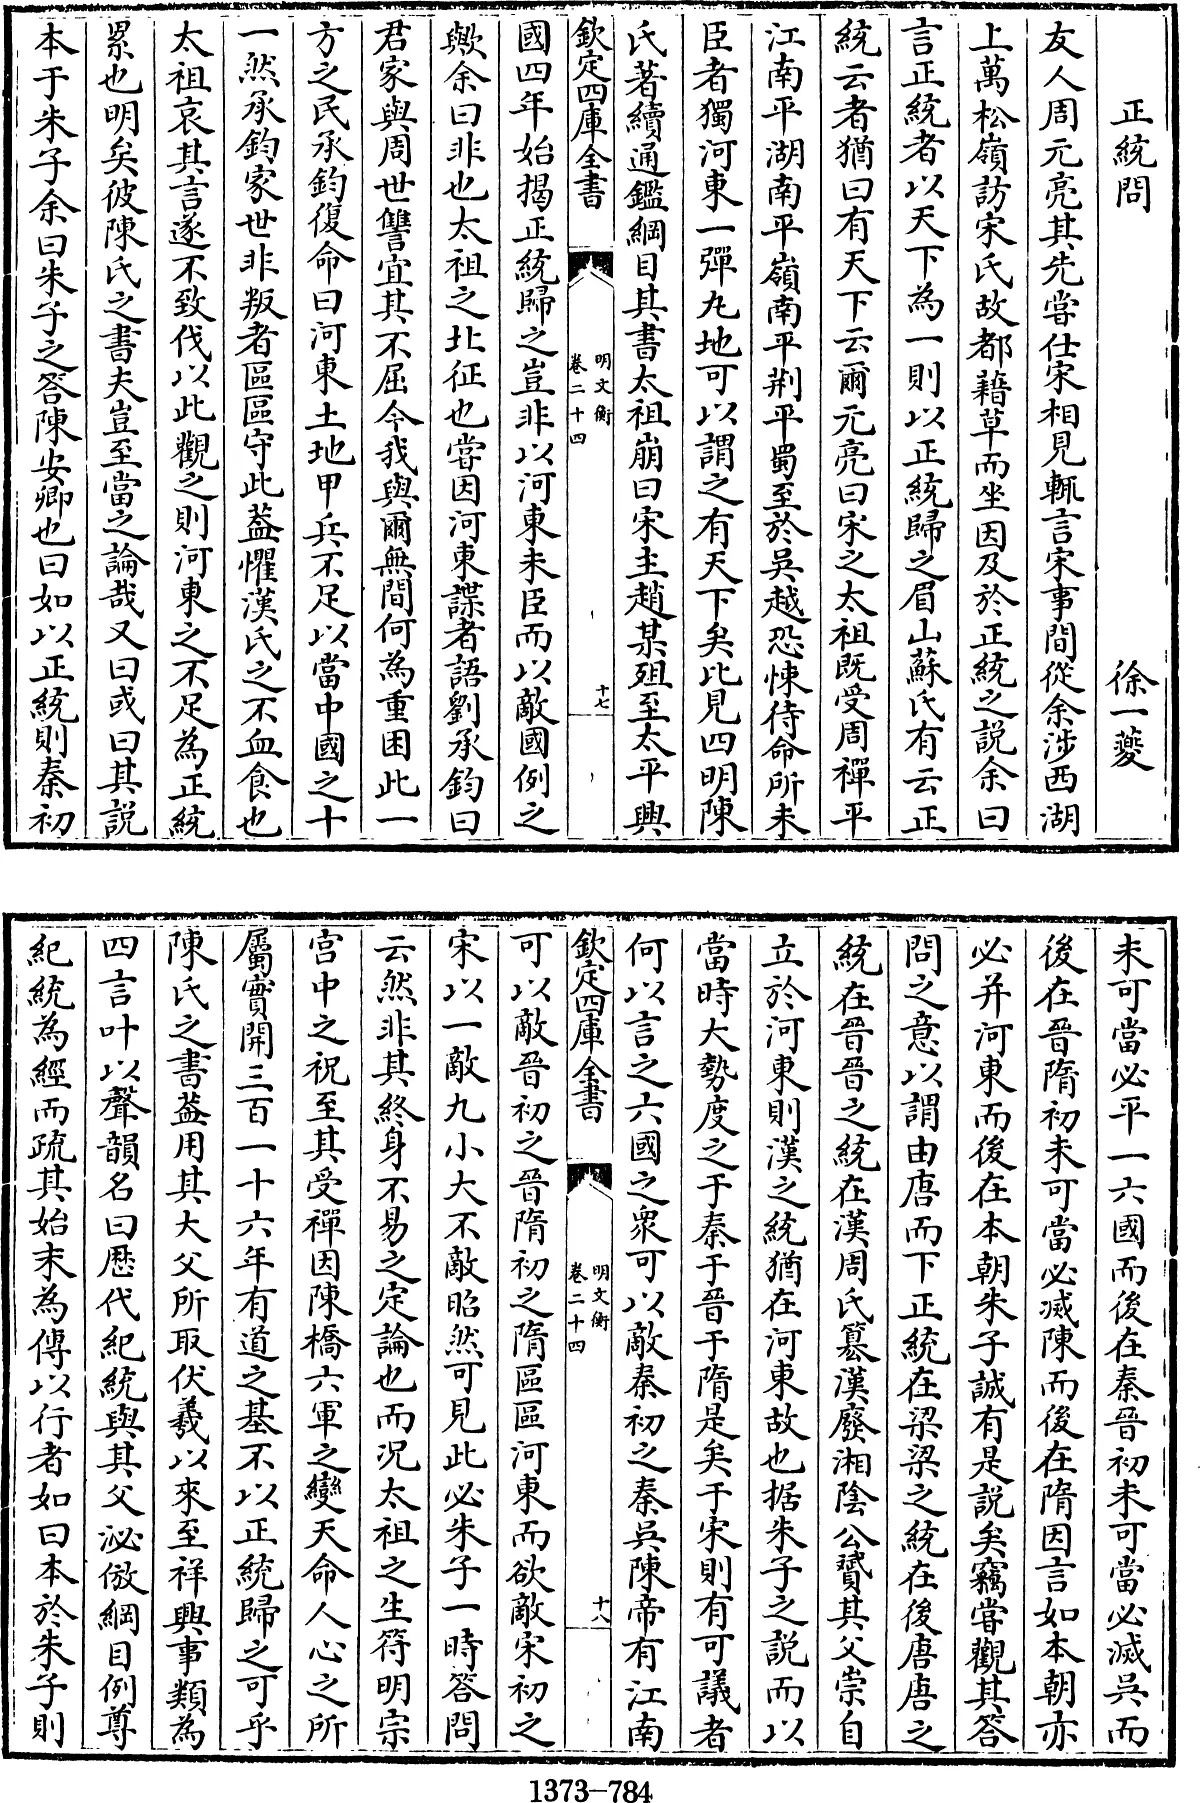 正統問 徐一夔
友人周元亮其先嘗仕宋相見輒言宋事間從余涉西湖
上萬松嶺訪宋氏故都藉草而坐因及於正統之説余曰
言正統者以天下為一則以正統歸之眉山蘇氏有云正
統云者猶曰有天下云爾元亮曰宋之太祖既受周禪平
江南平湖南平嶺南平荆平蜀至於吳越恐悚待命所未
臣者獨河東一彈丸地可以謂之有天下矣比見四明陳
氏著續通鑑綱目其書太祖崩曰宋主趙某殂至太平興
欽定四庫全書 明文衡 卷二十四 十七
國四年始揭正統歸之豈非以河東未臣而以敵國例之
歟余曰非也太祖之北征也嘗因河東諜者語劉承鈞曰
君家與周世讐宜其不屈今我與爾無間何為重困此一
方之民承鈞復命曰河東土地甲兵不足以當中國之十
一然承鈞家世非叛者區區守此葢懼漢氏之不血食也
太祖哀其言遂不致伐以此觀之則河東之不足為正統
累也明矣彼陳氏之書夫豈至當之論哉又曰或曰其説
本于朱子余曰朱子之答陳安卿也曰如以正統則秦初
未可當必平一六國而後在秦晉初未可當必滅吳而
後在晉隋初未可當必滅陳而後在隋因言如本朝亦
必并河東而後在本朝朱子誠有是説矣竊嘗觀其答
問之意以謂由唐而下正統在梁梁之統在後唐唐之
統在晉晉之統在漢周氏簒漢廢湘陰公贇其父崇自
立於河東則漢之統猶在河東故也据朱子之説而以
當時大勢度之于秦于晉于隋是矣于宋則有可議者
何以言之六國之衆可以敵秦初之秦吳陳帝有江南
欽定四庫全書 明文衡 卷二十四 十八
可以敵晉初之晉隋初之隋區區河東而欲敵宋初之
宋以一敵九小大不敵昭然可見此必朱子一時答問
云然非其終身不易之定論也而况太祖之生符明宗
宫中之祝至其受禪因陳橋六軍之變天命人心之所
屬實開三百一十六年有道之基不以正統歸之可乎
陳氏之書葢用其大父所取伏羲以來至祥興事類為
四言叶以聲韻名曰歴代紀統與其父泌倣綱目例尊
紀統為經而疏其始末為傳以行者如曰本於朱子則
1373-784